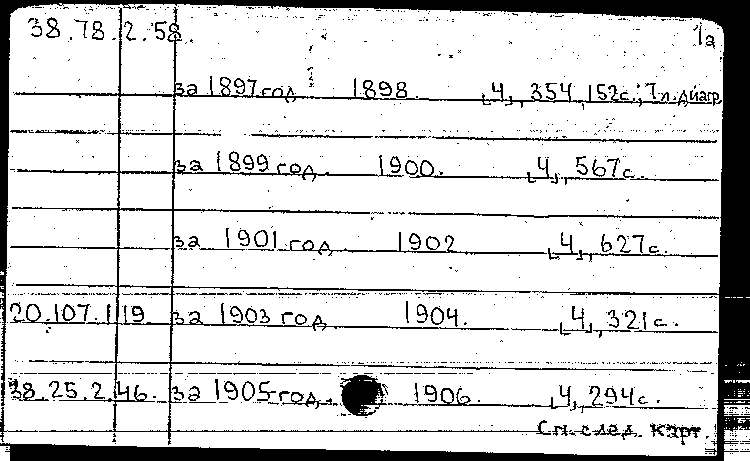 38.78.2.58. 1а
за 1897 год 1898. [4], 354, 152с.; 7 л. диагр.
за 1899 год. 1900. [4], 567с.
за 1901 год. 1902 [4], 627с.
20.107.1.19. за 1903 год. 1904. [4], 321с.
38.25.2.46. за 1905 год. 1906. [4], 294с.
См. след. карт.